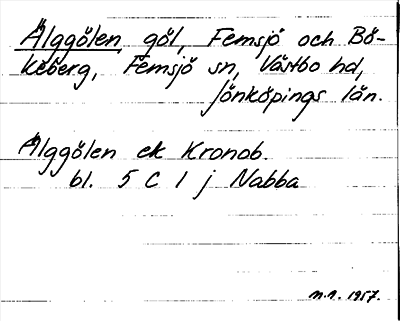 Älggölen, göl, Femsjö och Bö-
keberg, Femsjö sn, Västbo hd,
Jönköpings län.
Älggölen ek Kronob.
bl. 5 C 1 j Nabba
n.n. 1957.